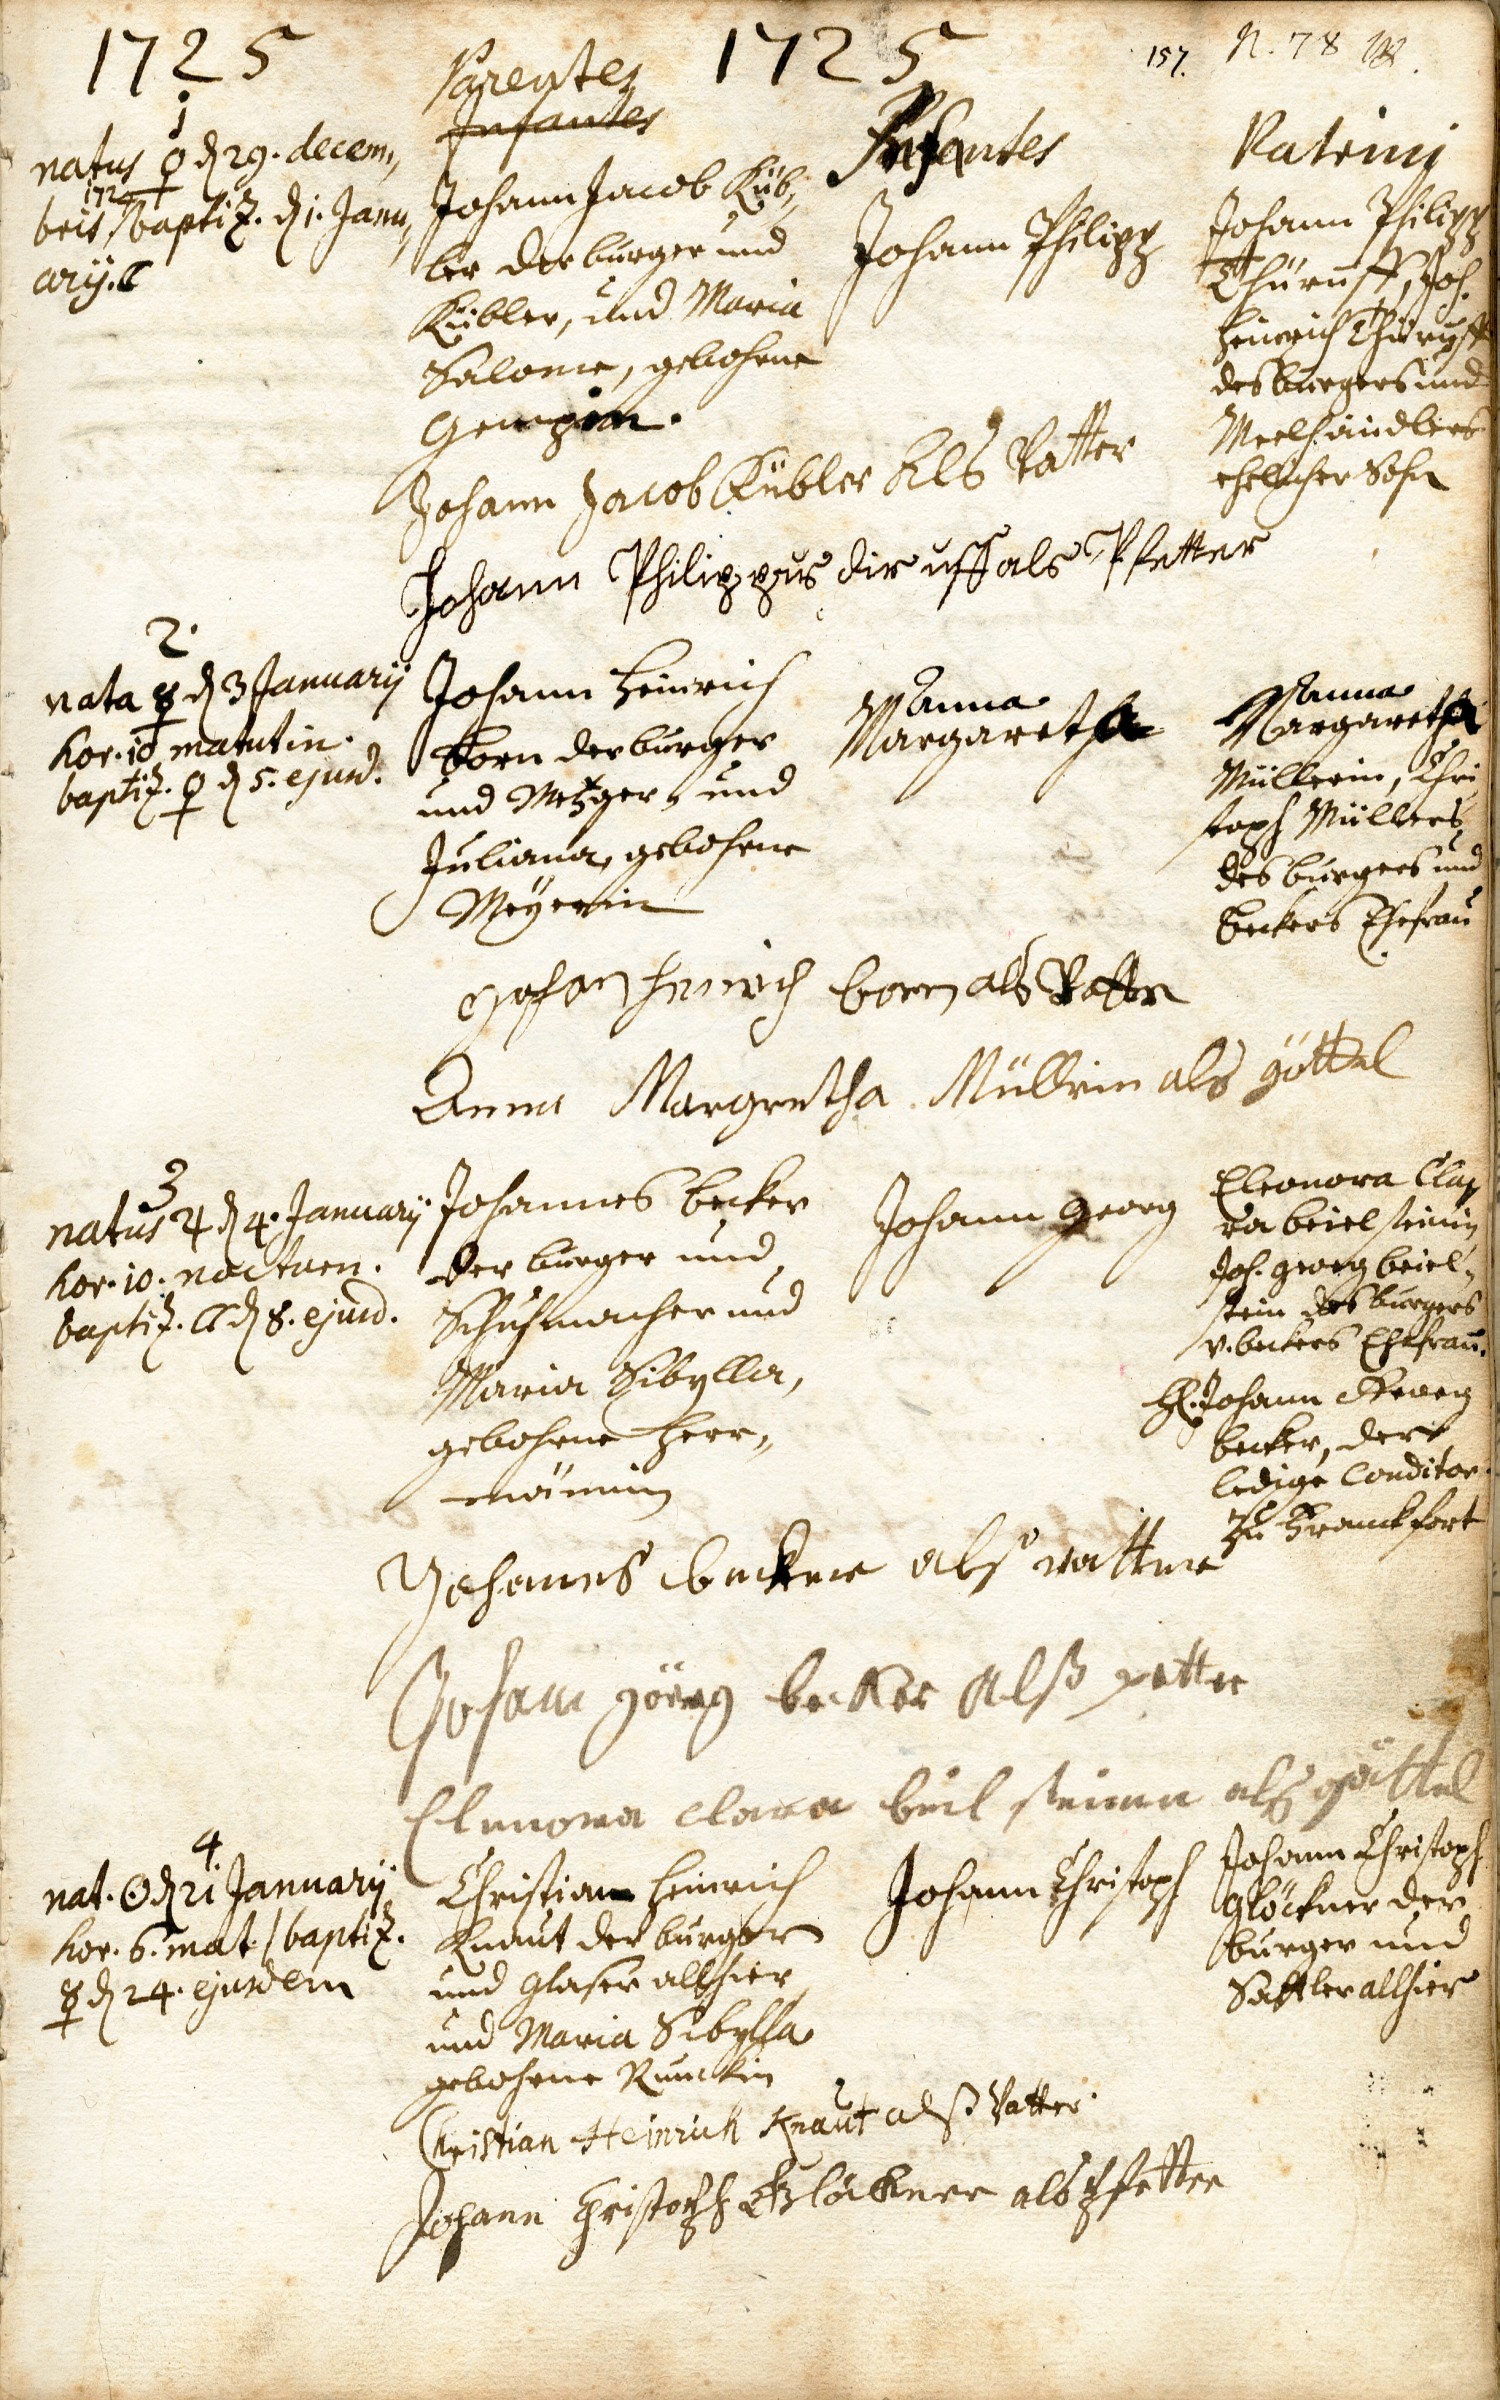 1725
1725
157. N. 78
Parentes
Infantes
Infantes
Patrini
1
natus ♀ d 29. decem„
1724
bris, / baptiz. d 1. Janu„
arij. ☾
Johann Jacob Küb„
ler der burger und
Kübler, und Maria
Salome, gebohrne
Johann Philipp
Johann Philipp
Thürüff, Joh.
Heinrich Thürüff
des burgers und
Meelhändlers
ehelicher Sohn
Johann Jacob Kübler Als Vatter
Johann Philippus dir uff als Pfetter
2.
nata ☿ d 3 January
hor. 10 matutin.
baptiz. ♀ d 5. ejusd.
Johann Heinrich
Born der burger
und Metzger, und
Juliana, gebohrne
Meyerin
Anna
Margaretha
Anna
Margaretha
Müllerin, Chri
stoph Müllers
des burgers und
beckers Ehefrau
Johan Henrich born als Vatter
Anna Margretha Müllrin als göttel
3
natus ♃ d 4. January
hor. 10. nocturn.
baptiz. ☾ d 8. ejusd.
Johannes Becker
der burger und
Schuhmacher und
Maria Sibylla,
gebohrne Herr„
männin
Johann Georg
Eleonora Cla„
ra beielsteinin
Joh. Georg beiel„
stein des burgers
v. beckers Ehefrau.
H. Johann Georg
becker, der
ledige Conditor
zu Franckfort
Johannes beckere als vattere
Johann görg becker Alß petter
Elenora clara beil steinen als göttel
4
nat. ☉ d 21 January
hor. 6. mat. / baptiz.
☿ d 24. ejusdem
Christian Heinrich
Knaut der burger
und Glaser allhier
und Maria Sibylla
gebohrne Runckin
Johann Christoph
Johann Christoph
Glöckner der
burger und
Sattler allhier
Christian Heinrich Knaut alß Vatter.
Johann Christoph Glöckner als Pfetter